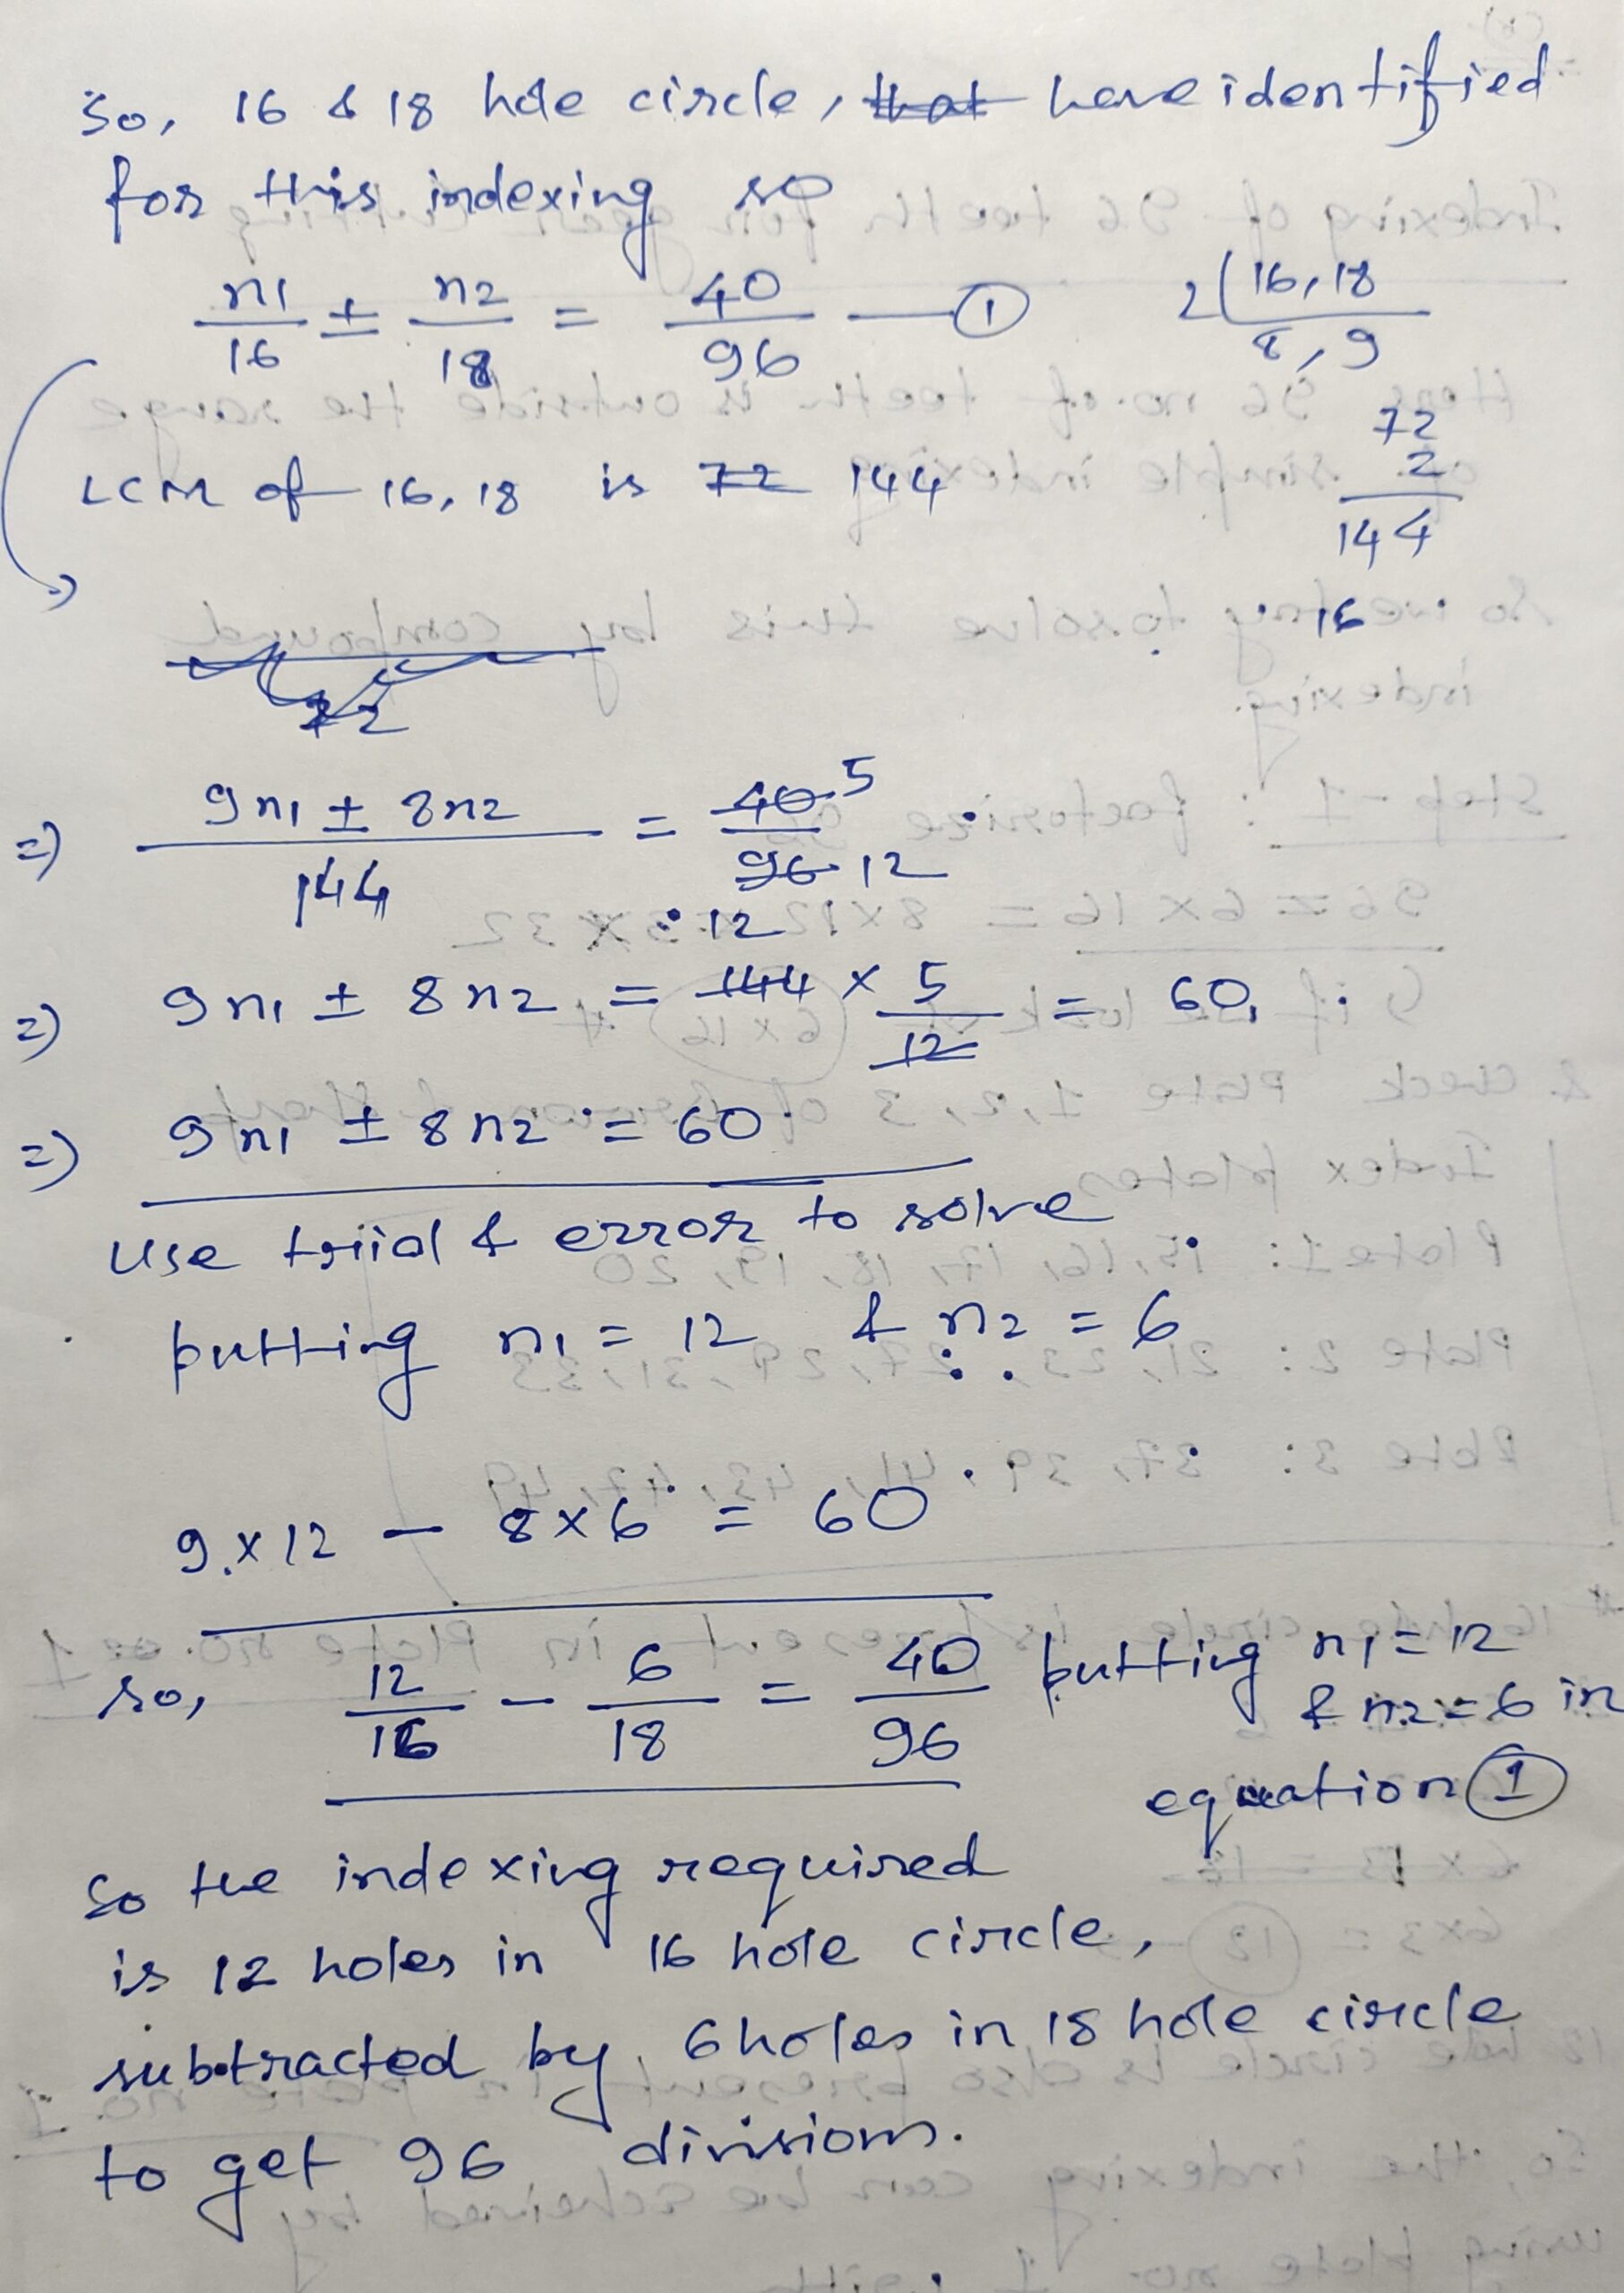 So, 16 & 18 hole circle, that have identified
for this indexing so
n1/16 ± n2/18 = 40/96 — ①
2 | 16, 18
8, 9
72
2
144
LCM of 16, 18 is 72 144
16
72
=) (9n1 ± 8n2)/144 = 40/96 5 12
12
=) 9n1 ± 8n2 = 144 × 5/12 = 60
=) 9n1 ± 8n2 = 60
Use triial & error to solve
putting n1 = 12 & n2 = 6
9 × 12 – 8 × 6 = 60
so, 12/16 – 6/18 = 40/96 putting n1 = 12
& n2 = 6 in
equation ①
So the indexing required
is 12 holes in 16 hole circle,
subtracted by 6 holes in 18 hole circle
to get 96 divisions.